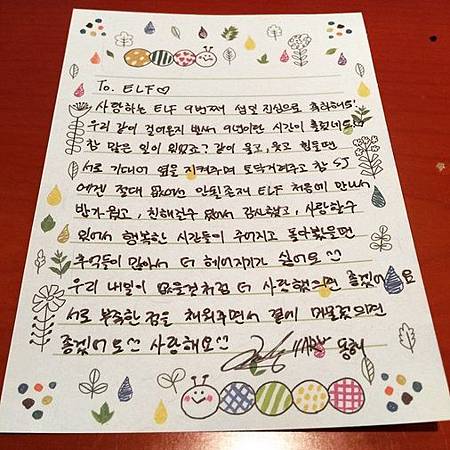 To. ELF♡
사랑하는 ELF 9번째 생일 진심으로 축하해요!
우리 같이 걸어온지 벌써 9년이란 시간이 흘렀네요
참 많은 일이 있었죠? 같이 울고, 웃고 힘들땐
서로 기대어 옆을 지켜주며 토닥거려주고 참 SJ
에겐 절대 없어서 안될존재 ELF 처음에 만나서
반가웠고, 친해질수 있어서 감사했고, 사랑할수
있어서 행복한 시간들이 주어지고 돌아봤을땐
추억들이 많아서 더 헤어지기가 싫어요
우리 내일이 없을것처럼 더 사랑했으면 좋겠어요
서로 부족한 점을 채워주면서 곁에 머물렀으면
좋겠어요 사랑해요 동해